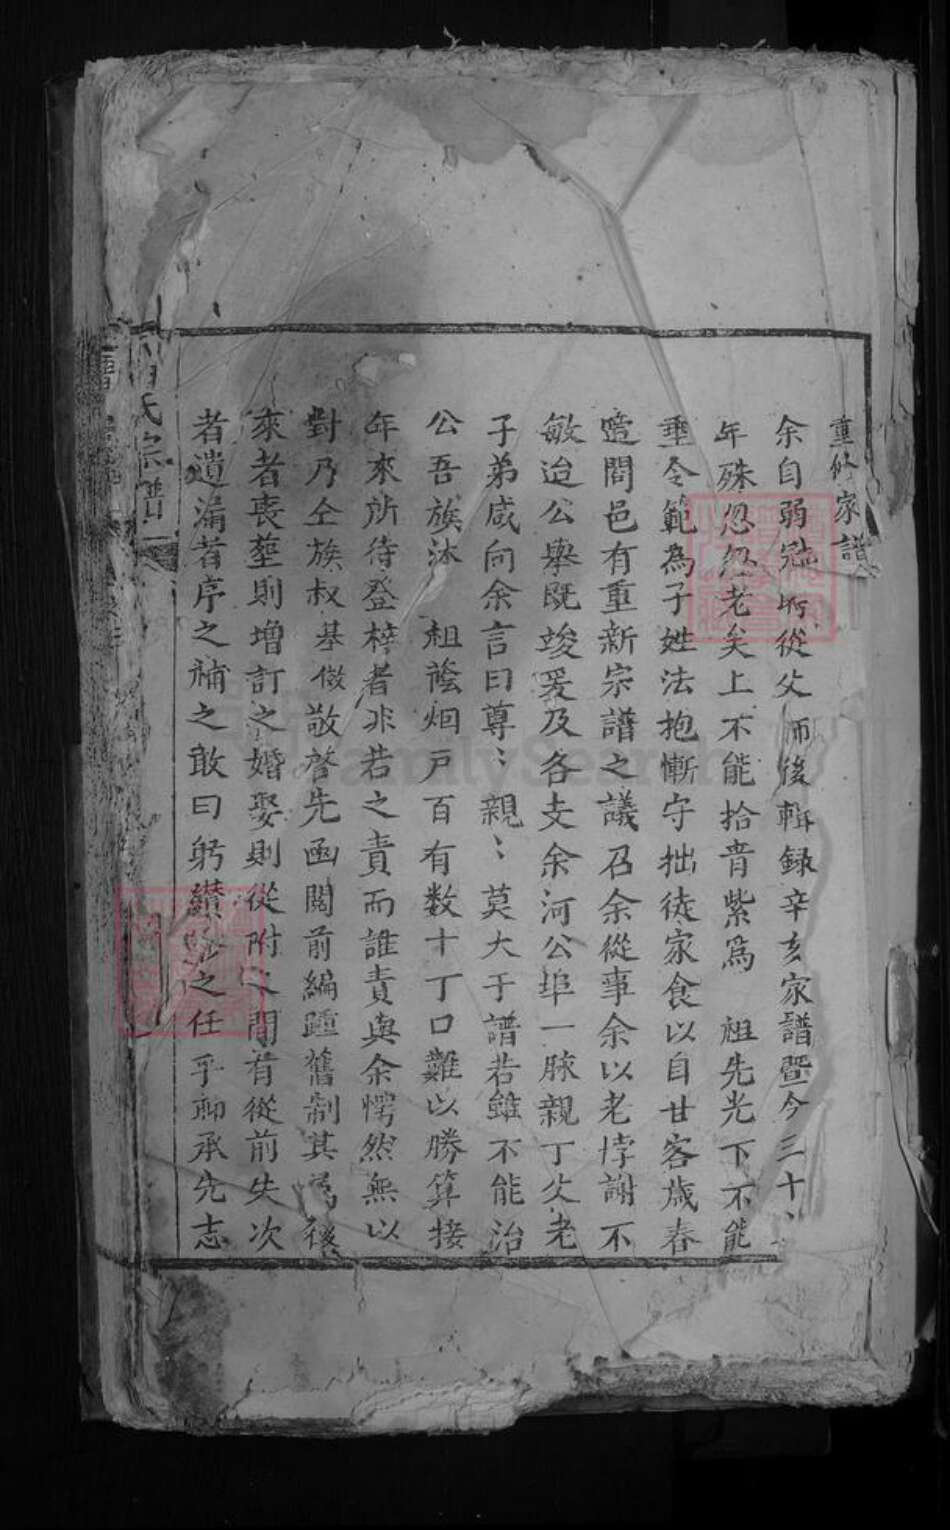 重修家譜
余自弱冠時從父師後輯録辛亥家譜暨今三十
年殊忽忽老矣上不能拾青紫爲 祖先光下不能
垂令範為子姓法抱慚守拙徒家食以自甘客歲春
噎問邑有重新宗譜之議召余從事余以老悖謝不
敏迨公舉既竣爰及各支余河公埠一脉親丁父老
子弟咸向余言曰尊〻親〻莫大于譜若雖不能治
公吾族沐 祖蔭烟戸百有数十丁口難以勝算接
年來所待登梓者非若之責而誰責與余愕然無以
對乃仝族叔基做敬啓先函閱前編踵舊制其爲後
來者喪塟則增訂之婚娶則從附入間有從前失次
者遺漏者序之補之敢曰躬纘脩之任乎聊承先志
氏宗譜